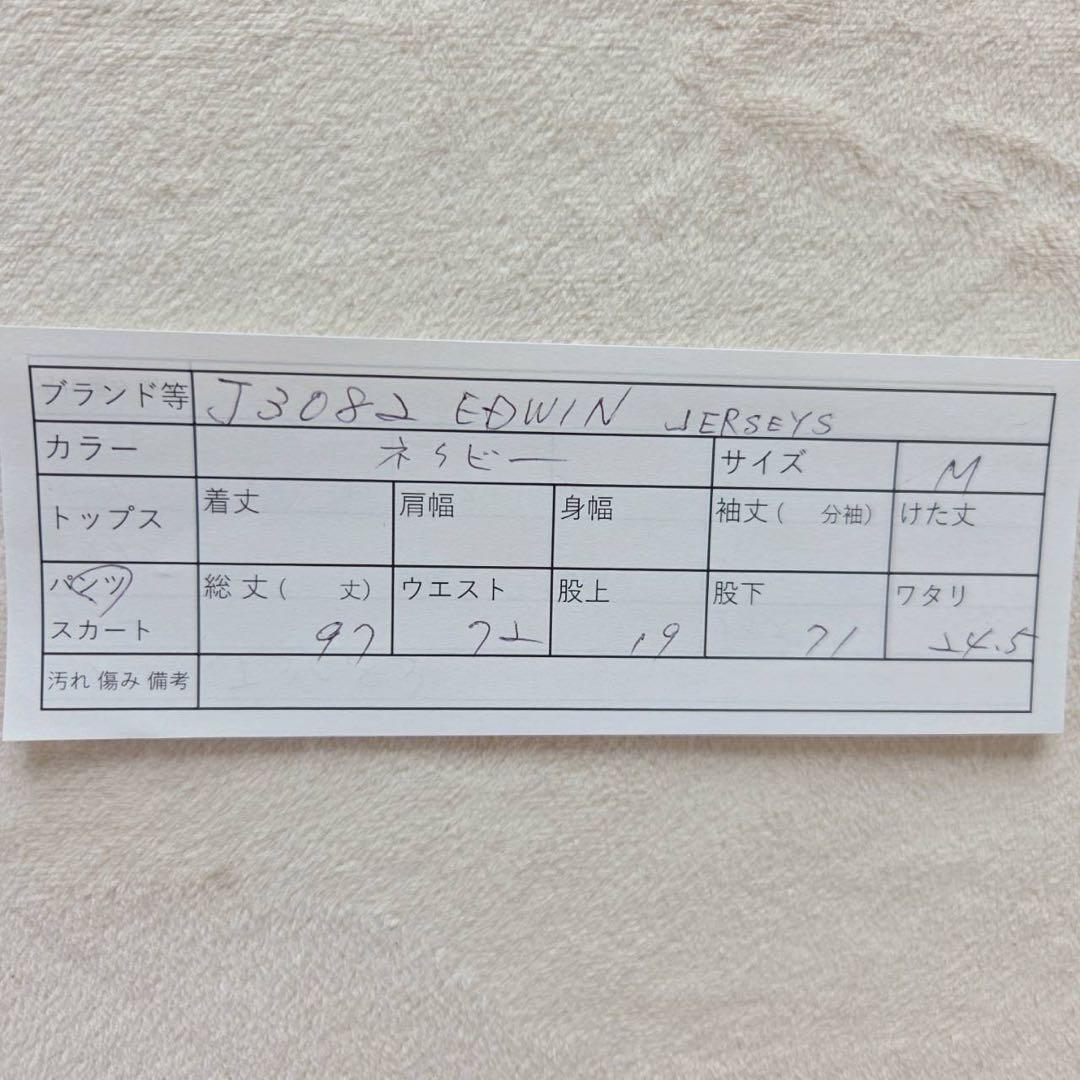 ブランド等 J3082 EDWIN JERSEYS
カラー ネイビー サイズ M
トップス 着丈 肩幅 身幅 袖丈( 分袖) けた丈
パンツ 総丈( 丈) ウエスト 股上 股下 ワタリ
スカート 97 72 19 71 24.5
汚れ 傷み 備考